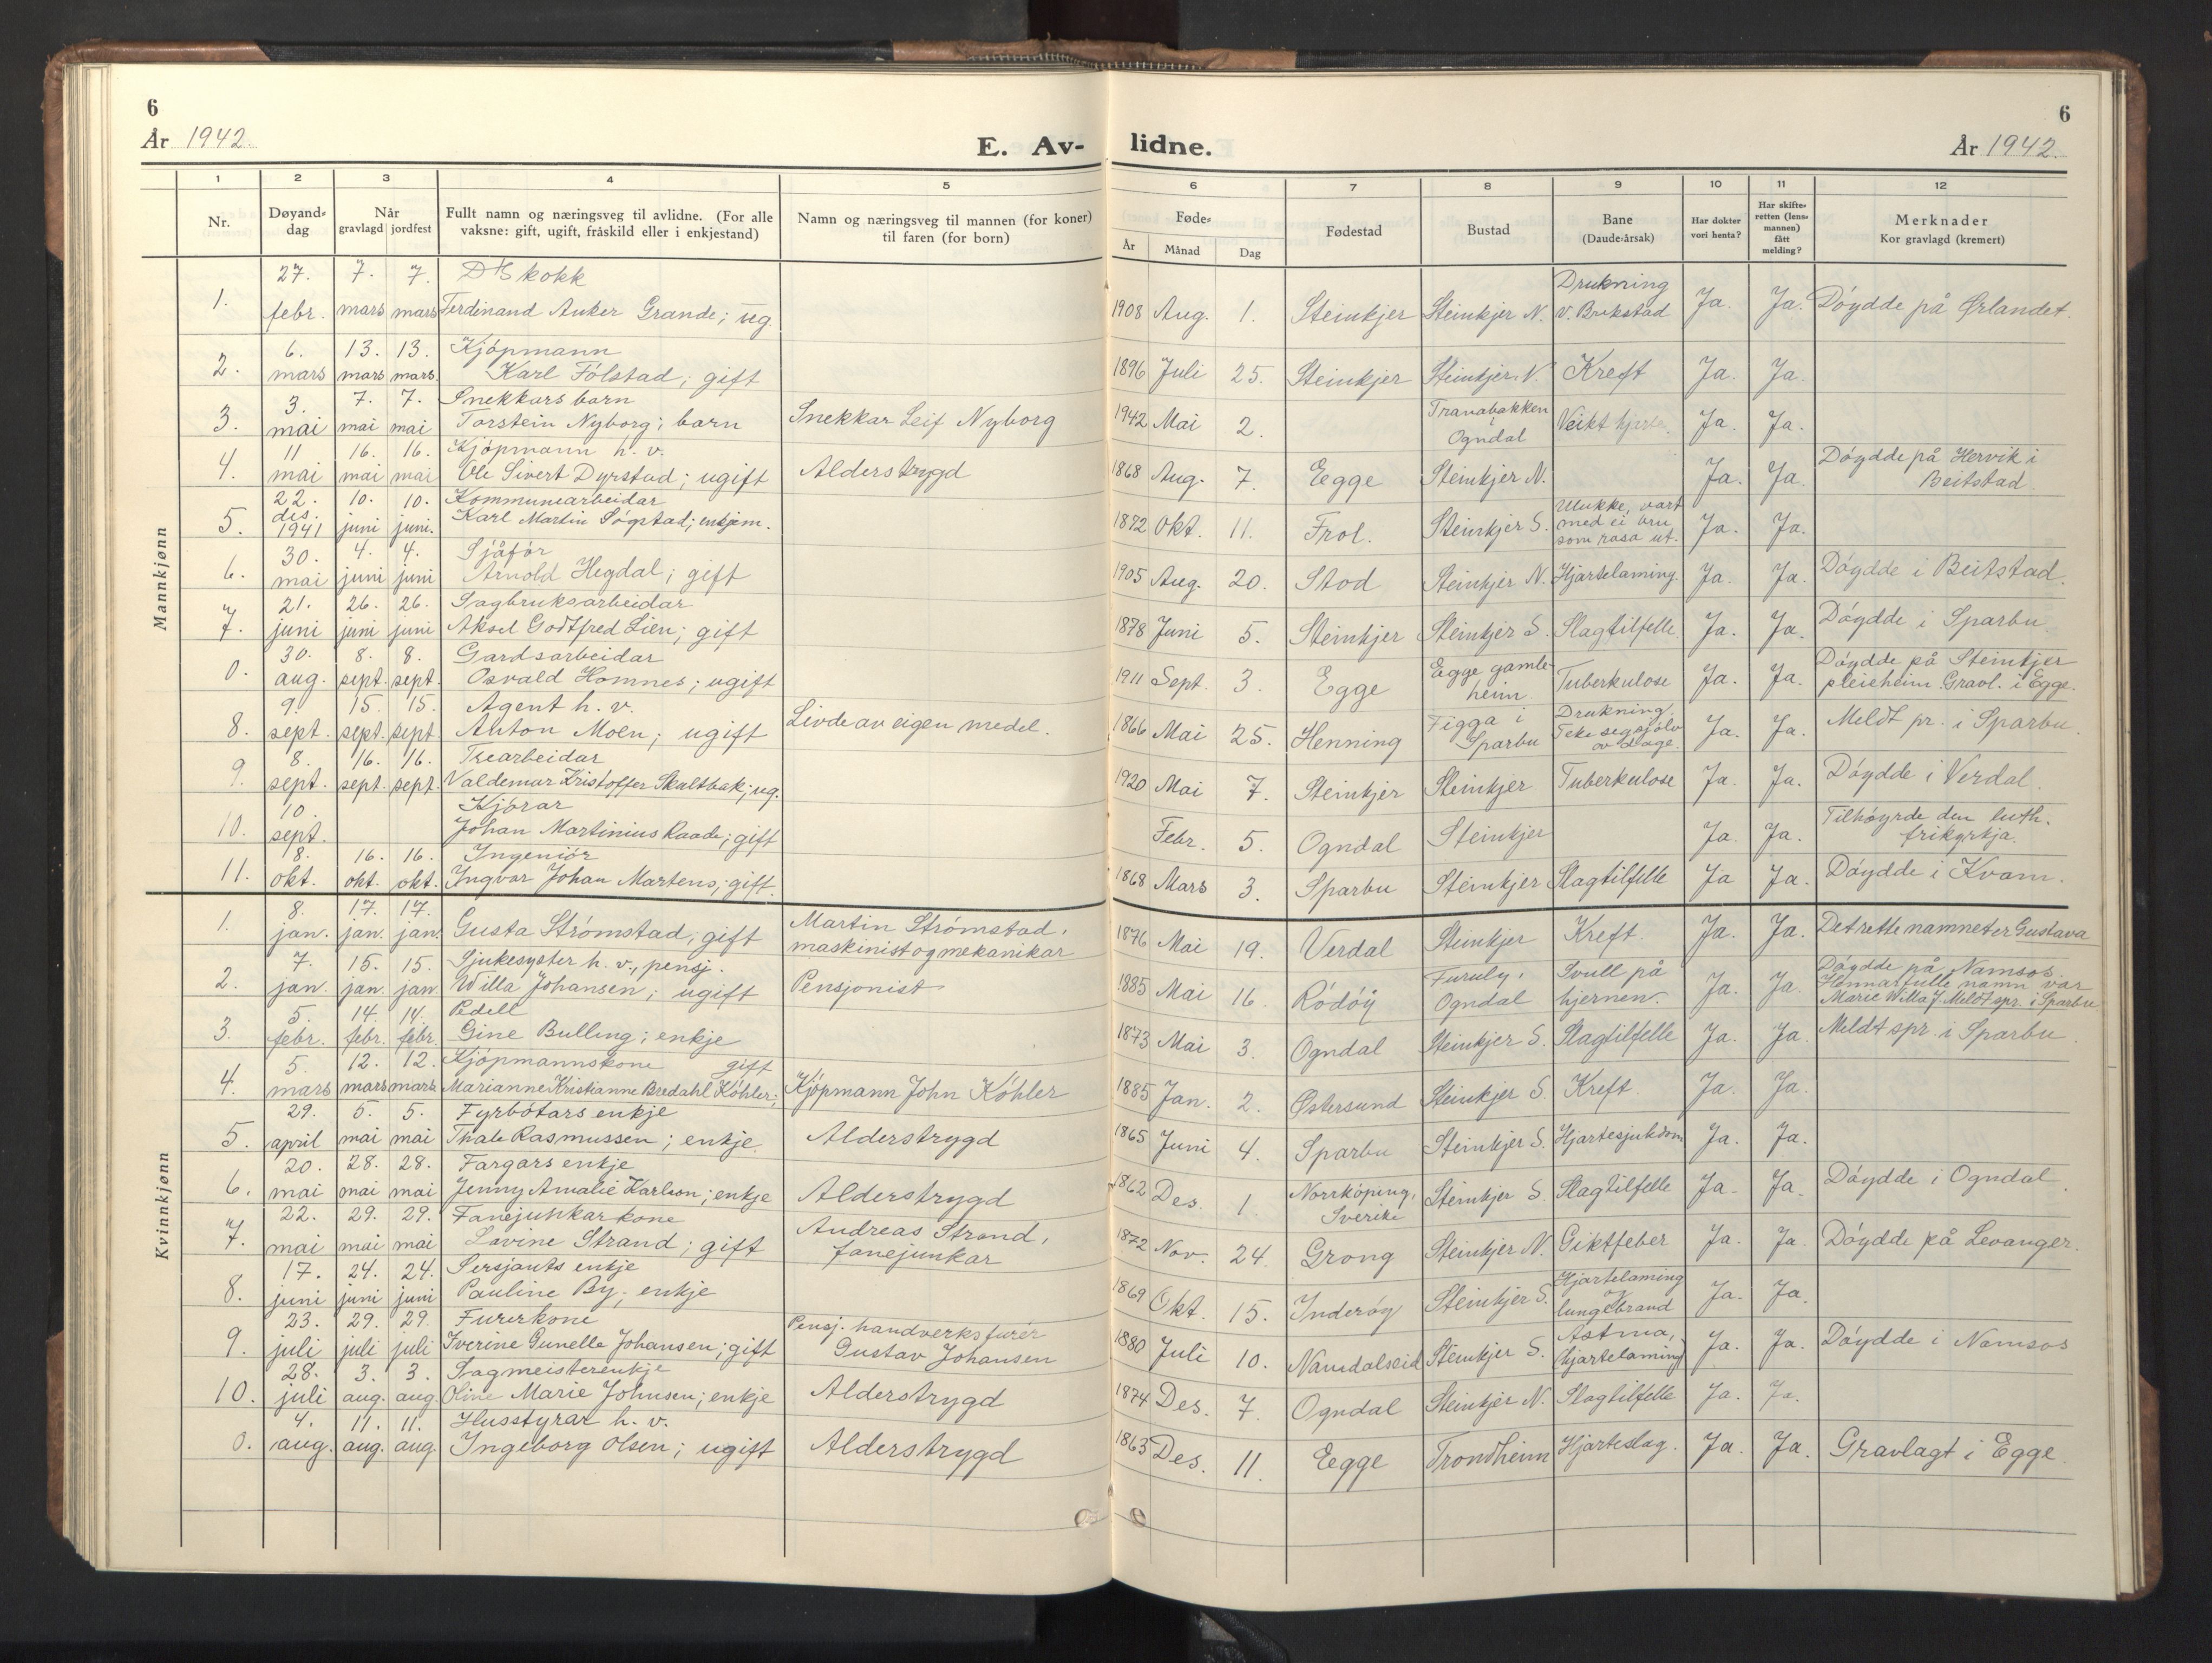 6
År 1942.
E. Av-
1 2 3 4 5
Nr.
Døyand-
dag
Når
gravlagd jordfest
Fullt namn og næringsveg til avlidne. (For alle
vaksne: gift, ugift, fråskild eller i enkjestand)
Namn og næringsveg til mannen (for koner)
til faren (for born)
Mannkjønn
27. 7. 7. D/S kokk
1. febr. mars mars Ferdinand Anker Grande; ug.
6. 13. 13. Kjøpmann
2. mars mars mars. Karl Fölstad; gift
3. 7. 7. Snekkars barn
3. mai mai mai Torstein Nyborg; barn Snekkar Leif Nyborg
11 16. 16. Kjøpmann h. v.
4. mai mai mai Ole Sivert Dyrstad; ugift Alderstrygd
22. 10. 10. Kommunearbeidar
5. des. 1941 juni juni. Karl Martin Søgstad; enkjem.
30. 4. 4. Sjåfør
6. mai juni juni Arnold Hegdal; gift
21. 26. 26. Sagbruksarbeidar
7. juni juni juni Aksel Godtfred Lien; gift
30. 8. 8. Gardsarbeidar
0. aug. sept. sept. Osvald Homnes; ugift
9. 15. 15. Agent h. v.
8. sept. sept. sept. Anton Moen; ugift Livde av eigen medel.
8. 16. 16. Trearbeidar
9. sept. sept. sept. Valdemar Kristoffer Skaltbak; ug.
10. Kjørar
10. sept. Johan Martinius Raade; gift
8. 16. 16. Ingeniør
11. okt. okt. okt. Ingvar Johan Martens; gift.
Kvinnkjønn
8. 17. 17. Martin Strømstad,
1. jan. jan. jan. Gusta Strømstad; gift maskinist og mekanikar
7. 15. 15. Sjukesyster h. v., pensj.
2. jan. jan. jan. Willa Johansen; ugift Pensjonist
5. 14. 14. Pedell
3. febr. febr. febr. Gine Bulling; enkje
5. 12. 12. Kjøpmannskone gift
4. mars mars mars Marianne Kristianne Bredahl Köhler; Kjøpmann John Köhler
29. 5. 5. Fyrbøtars enkje
5. april mai mai Thale Rasmussen; enkje Alderstrygd
20. 28. 28. Fargars enkje
6. mai mai mai Jenny Amalie Karlson; enkje Alderstrygd
22. 29. 29. Fanejunkar kone Andreas Strand,
7. mai mai mai Lovine Strand; gift fanejunkar
17. 24. 24. Sersjants enkje
8. juni juni juni Pauline By; enkje
23. 29. 29. Furerkone Pensj. handverksfurér
9. juli juli juli Iverine Gunelle Johansen; gift Gustav Johansen
28. 3. 3. Sagmeisterenkje
10. juli aug. aug. Oline Marie Johnsen; enkje Alderstrygd
4. 11. 11. Husstyrar h. v.
0. aug. aug. aug. Ingeborg Olsen; ugift Alderstrygd
6
lidne.
År 1942.
6 7 8 9 10 11 12
Føde-
År Månad Dag
Fødestad
Bustad
Bane
(Daude-årsak)
Har dokter
vori henta?
Har skifte-
retten (lens-
mannen)
fått
melding?
Merknader
Kor gravlagd (kremert)
Drukning
1908 Aug. 1. Steinkjer Steinkjer N. v. Brekstad Ja. Ja. Döydde på Ørlandet.
1896 Juli 25. Steinkjer Steinkjer N. Kreft Ja. Ja.
Tranabakken
1942 Mai 2. Ogndal Veikt hjarte. Ja. Ja.
Döydde på Hervik i
1868 Aug. 7. Egge Steinkjer N. Ja. Ja. Beitstad.
Ulukke, vart
1872 Okt. 11. Frol. Steinkjer S. med ei bru Ja. Ja.
som rasa ut.
1905 Aug. 20. Stod Steinkjer N. Hjartelaming. Ja. Ja. Döydde i Beitstad.
1878 Juni 5. Steinkjer Steinkjer S. Slagtilfelle. Ja. Ja. Döydde i Sparbu.
Egge gamle- Döydde på Steinkjer
1911 Sept. 3. Egge heim. Tuberkulose Ja. Ja. pleieheim. Gravl. i Egge.
Figga i Drukning.
1866 Mai 25. Henning Sparbu Teke seg sjölv Ja. Ja. Meldt pr. i Sparbu.
av dage.
1920 Mai 7. Steinkjer Steinkjer Tuberkulose Ja. Ja. Döydde i Verdal.
Tilhøyrde den luth.
Febr. 5. Ogndal Steinkjer Ja. Ja. frikyrkja.
1868 Mars 3. Sparbu Steinkjer Slagtilfelle Ja Ja. Döydde i Kvam.
1876 Mai 19. Verdal Steinkjer Kreft. Ja. Ja. Det rette namnet er Gustava
Furuly, Svull på Döydde på Namsos.
1885 Mai 16. Rödöy Ogndal hjernen. Ja. Ja. Hennar fulle namn var
Marie Willa J. Meldt spr. i Sparbu
1873 Mai 3. Ogndal Steinkjer S. Slagtilfelle Ja. Ja. Meldt spr. i Sparbu.
1885 Jan. 2. Østersund Steinkjer S. Kreft. Ja. Ja.
1865 Juni 4. Sparbu Steinkjer S. Hjartesjukdom Ja. Ja.
1862 Des. 1. Norrköping, Steinkjer S. Slagtilfelle Ja. Ja. Döydde i Ogndal.
Sverike
1872 Nov. 24. Grong Steinkjer N. Giktfeber Ja. Ja. Döydde på Levanger.
Hjartelaming
1869 Okt. 15. Inderøy Steinkjer S. og Ja. Ja.
lungebrand
Astma,
1880 Juli 10. Namdalseid Steinkjer S. (hjartelaming) Ja. Ja. Döydde i Namsos
1874 Des. 7. Ogndal Steinkjer N. Slagtilfelle Ja. Ja.
1863 Des. 11. Egge Trondheim Hjarteslag. Ja. Ja. Gravlagt i Egge.